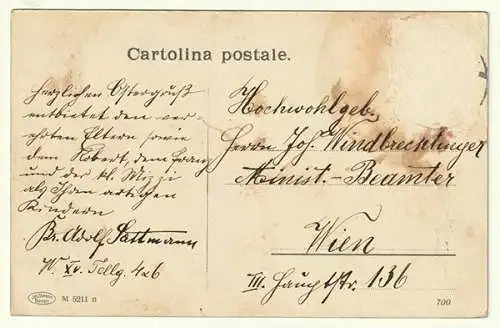 Cartolina postale.
herzlichen Ostergruß
entbietet den ver-
ehrten Eltern sowie
dem Robert, dem Franz
und der kl. Mizzi
als Ihren artigen
Kindern
Br. Adolf Sattmann
W. XV. Tellg. 4a6
Hochwohlgeb.
Herrn Joh. Windbrechtinger
Minist.-Beamter
Wien
III. Hauptstr. 136
M 5211 n
700